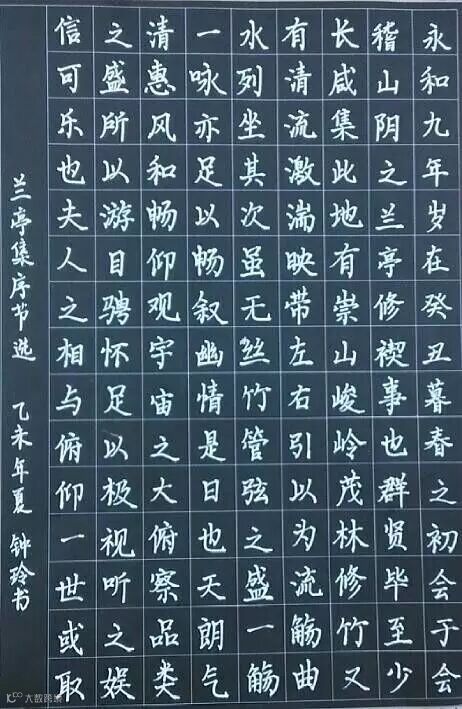 永和九年岁在癸丑暮春之初会于会
稽山阴之兰亭修禊事也群贤毕至少
长咸集此地有崇山峻岭茂林修竹又
有清流激湍映带左右引以为流觞曲
水列坐其次虽无丝竹管弦之盛一觞
一咏亦足以畅叙幽情是日也天朗气
清惠风和畅仰观宇宙之大俯察品类
之盛所以游目骋怀足以极视听之娱
信可乐也夫人之相与俯仰一世或取
兰亭集序节选 乙未年夏 钟玲书
大数跨境